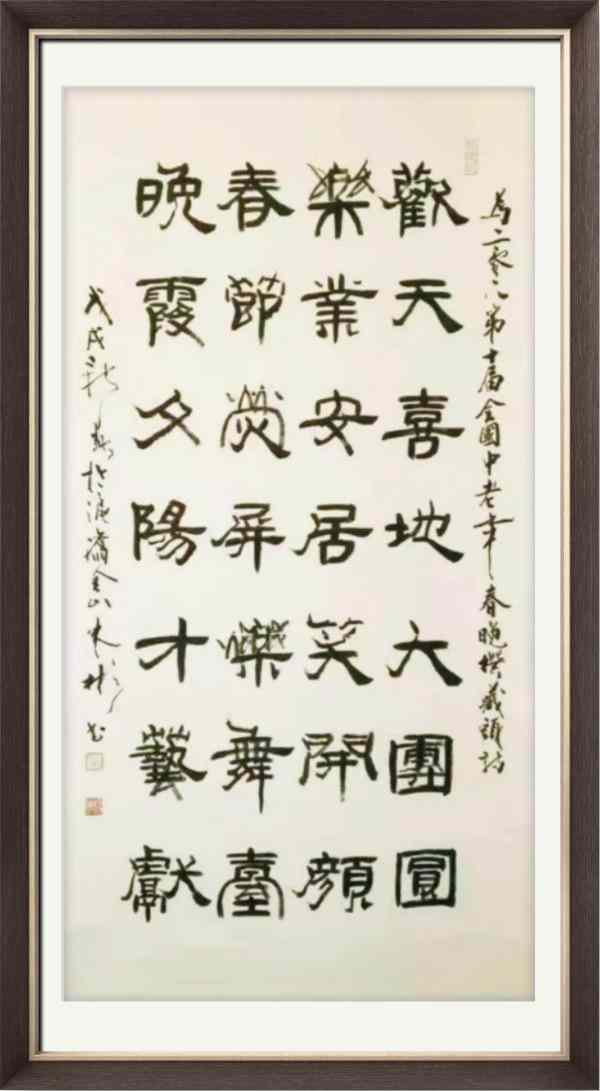 為二零一八第十届全國中老年春晚撰藏頭詩
歡天喜地大團圓
樂業安居笑開顏
春節熒屏爍舞臺
晚霞夕陽才藝獻
戊戌新於滬金山彬书